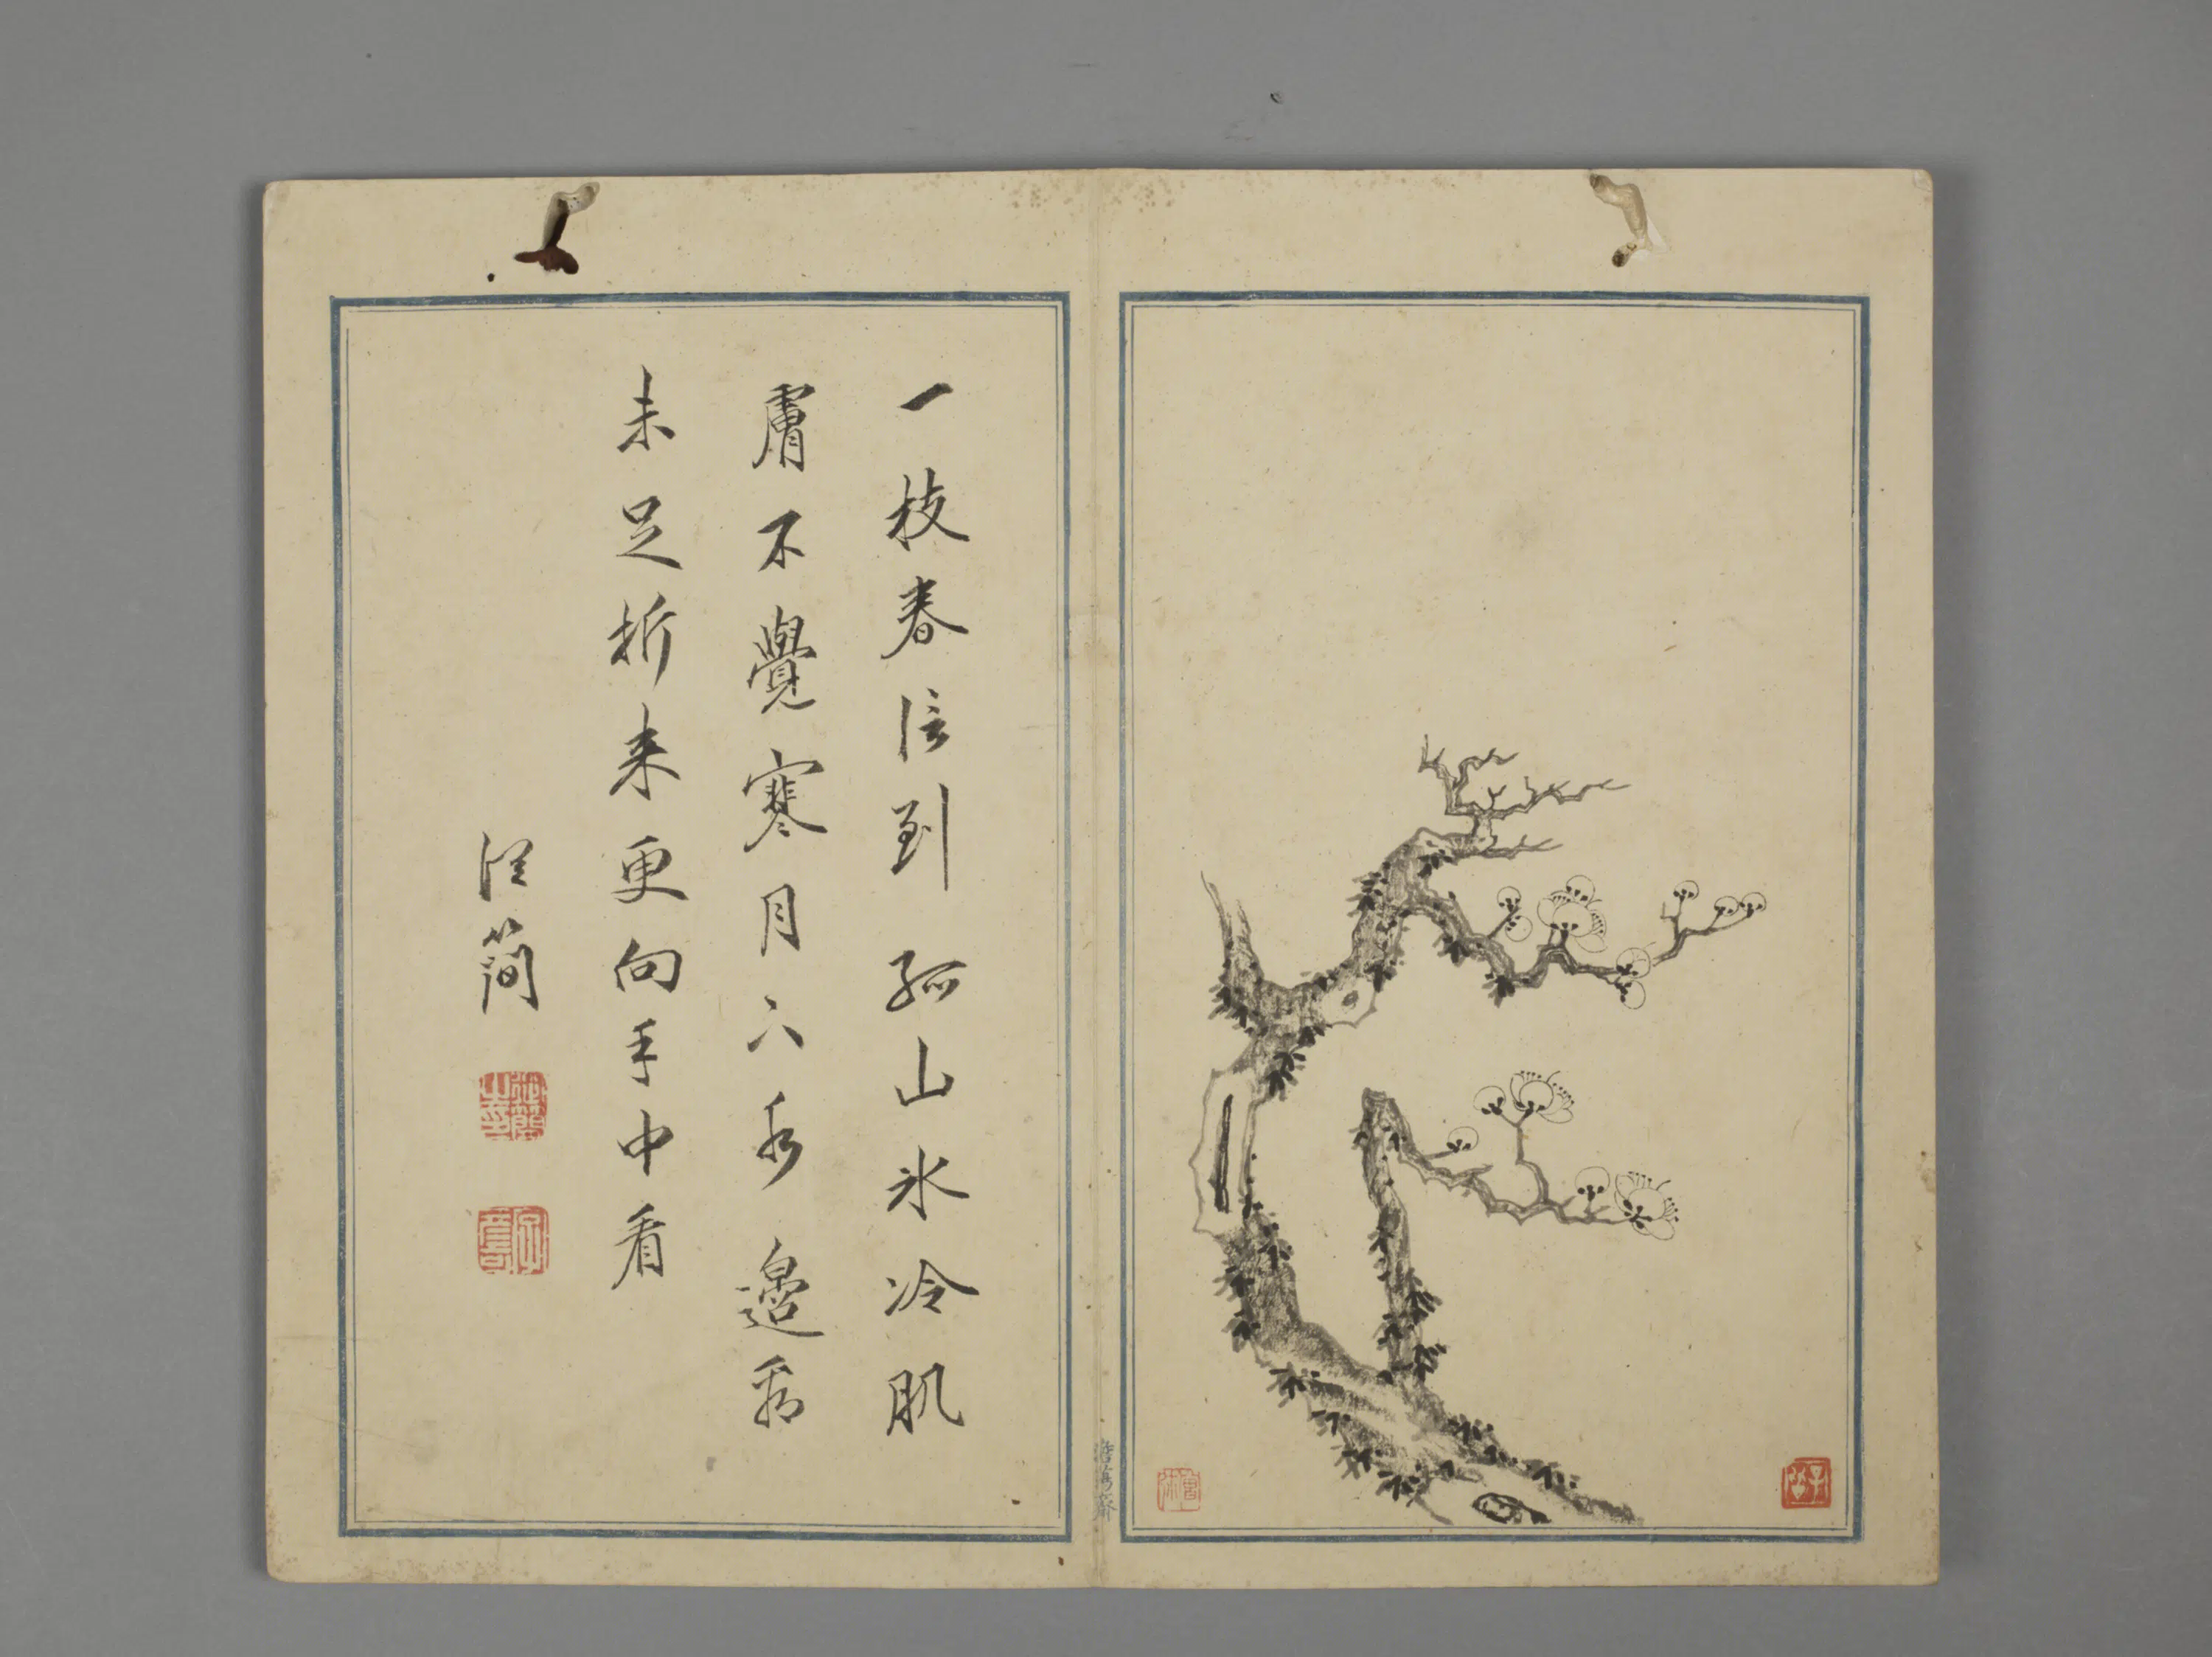 一枝春信到孤山氷冷肌
膚不覺寒月下水邊看
未足折来更向手中看
簡